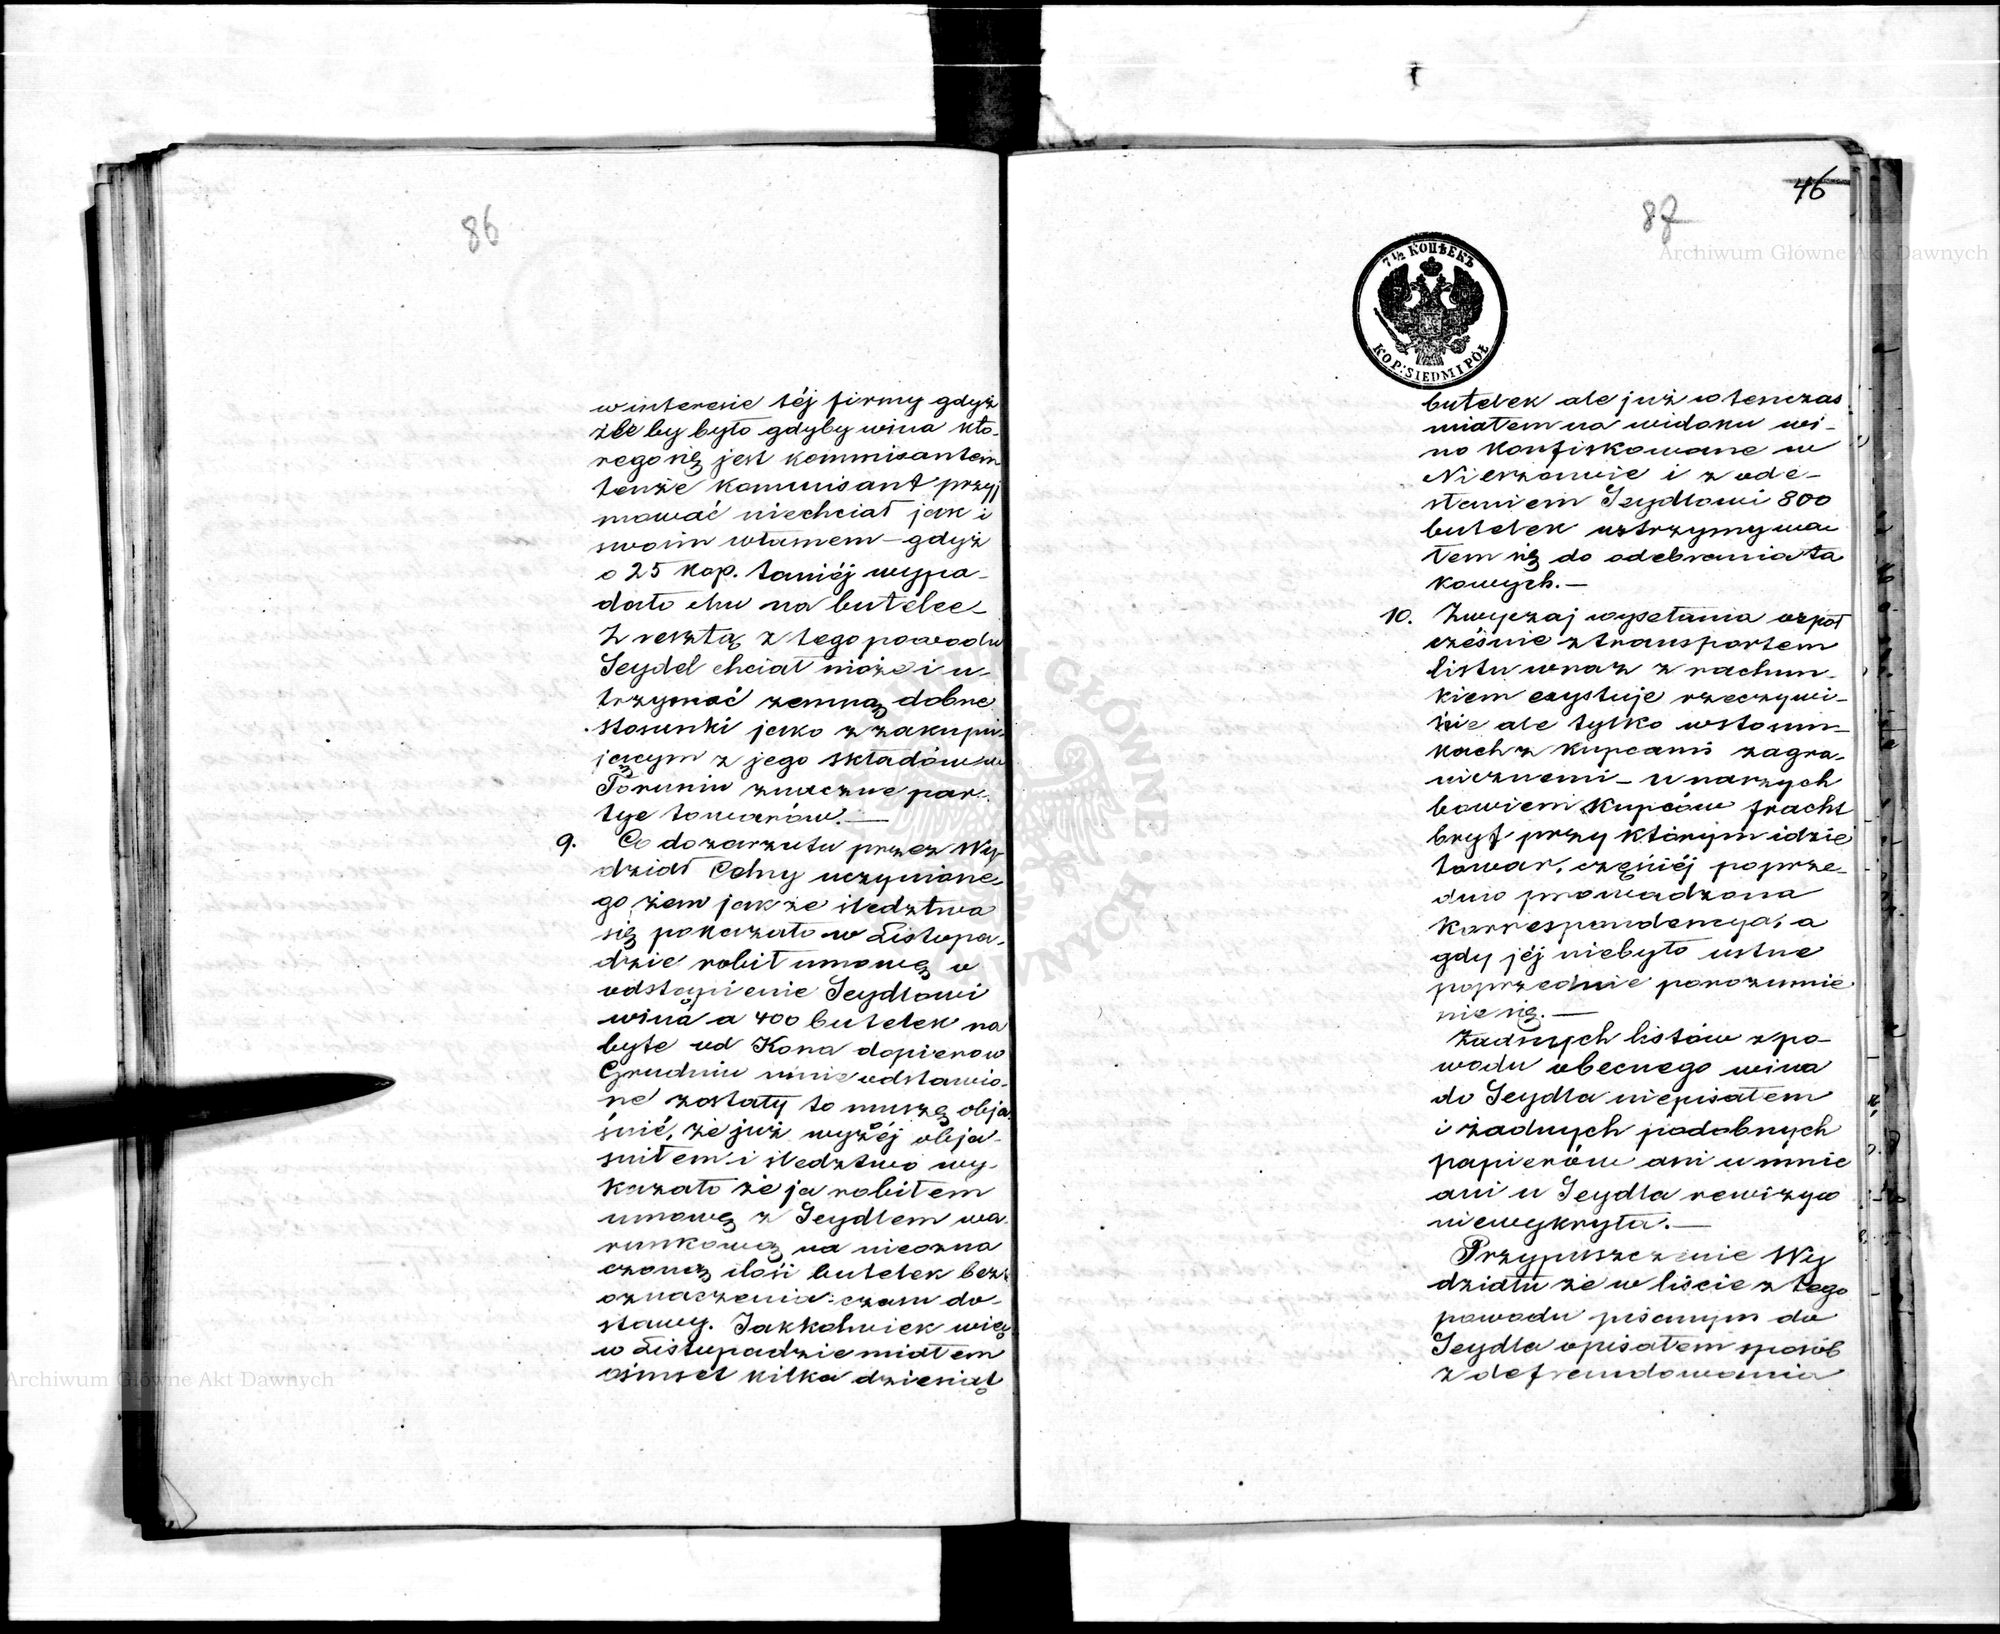 86
w interesie téj firmy gdyż
źle by było gdyby wina któ-
rego się jest kommisantem
tenże kommisant przyj
mować niechciał jak i
swoim własnem – gdyż
o 25 kop. taniéj wypa-
dało mu na butelce
Z resztą z tego powodu
Seydel chciał może i u-
trzymać zemną dobre
stosunki jako z zakupu-
jącym z jego składów w
Toruniu znaczne par-
tye towarów. —
9. Co do zarzutu przez Wy-
dział Celny uczynione-
go, żem jak ze śledztwa
się pokazało w Listopa-
dzie robił umowę o
odstąpienie Seydlowi
wina a 400 butelek na
byte od Kona dopiero w
Grudniu mnie odstawio-
ne zostały to muszę obja
śnić, że już wyżéj obja-
śniłem i śledztwo wy-
kazało że ja robiłem
umowę z Seydlem wa-
runkową na nieozna
czoną ilość butelek bez
oznaczenia czasu do-
stawy. Jakkolwiek więc
w Listopadzie miałem
ośmset kilka dziesiąt
46
87
7 1/2 КОПѢЕКЪ
KOP: SIEDM I PÓŁ
butelek ale już w tenczas
miałem na widoku wi-
no konfiskowane w
Nieszawie i z ode-
słaniem Seydlowi 800
butelek wstrzymywa
łem się do odebrania ta
kowych. —
10. Zwyczaj wysełania współ
cześnie z transportem
listu wraz z rachun-
kiem exystuje rzeczywi-
ście ale tylko w stosun-
kach z kupcami zagra-
nicznemi – u naszych
bowiem kupców fracht
bryf przy którym idzie
towar, częściéj poprze-
dnio prowadzona
korrespondencya, a
gdy jéj niebyło ustne
poprzednie porozumie
nie się. —
Żadnych listów z po-
wodu obecnego wina
do Seydla niepisałem
i żadnych podobnych
papierów ani u mnie
ani u Seydla rewizya
niewykryła. —
Przypuszczenie Wy
działu że w liście z tego
powodu pisanym do
Seydla opisałem sposób
z defraudowania
Archiwum Główne Akt Dawnych
Archiwum Główne Akt Dawnych